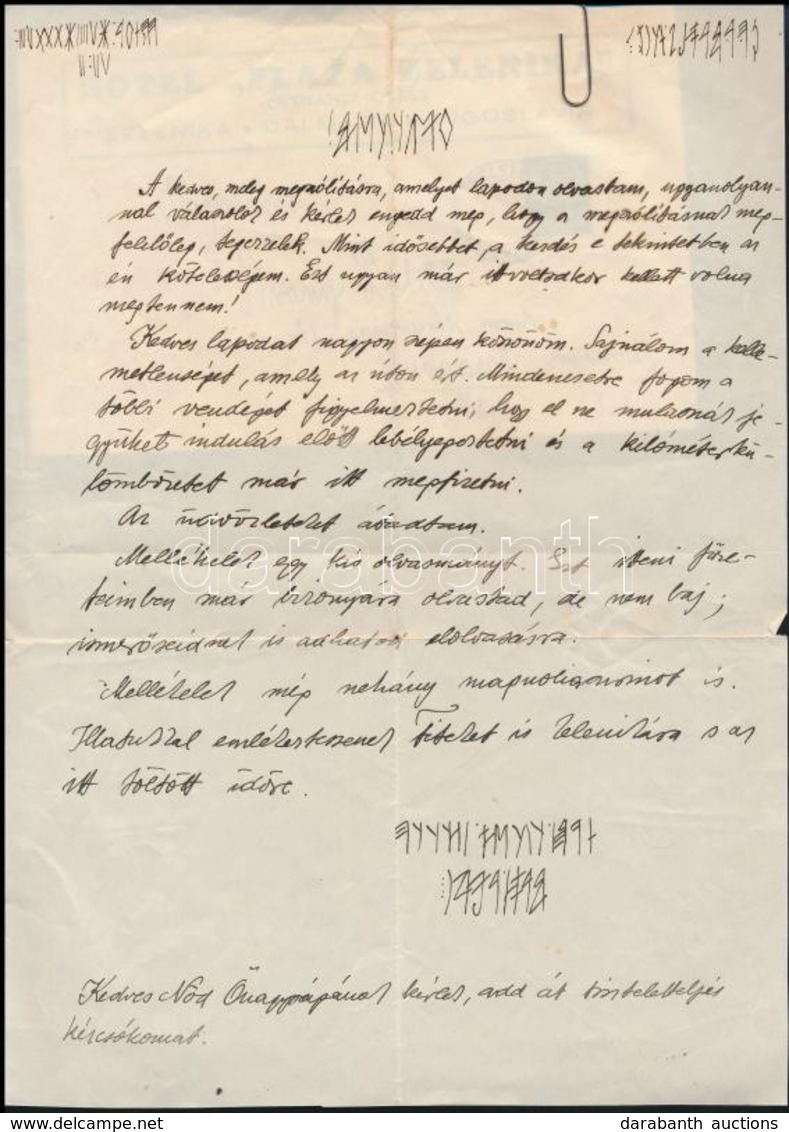 A kedves, meleg megszólításra, amelyet lapodon olvastam, ugyanolyan-
nal válaszolok és kérlek engedd meg, hogy a megszólításnak meg-
felelőleg, tegezzelek. Mint idősebbet, a kezdés e tekintetben az
én kötelességem. Ezt ugyan már ittvoltodkor kellett volna
megtennem!
Kedves lapodat nagyon szépen köszönöm. Sajnálom a kelle-
metlenséget, amely az úton ért. Mindenesetre fogom a
többi vendéget figyelmeztetni, hogy el ne mulasszák je-
gyüket indulás előtt lebélyegeztetni és a kilométerkü-
lömbözetet már itt megfizetni.
Az üdvözletet átadtam.
Mellékelek egy kis olvasmányt. Ezt itteni füze-
teimben már bizonyára olvastad, de nem baj;
ismerőseidnek is adhatod elolvasásra.
Mellékelek még néhány magnoliaszirmot is.
Illatukkal emlékeztessenek Titeket is Zelenikára s az
itt töltött időre.
Kedves Nőd Önagypápának kérlek, add át tiszteletteljes
kézcsókomat.
darabanth
darabanth auctions